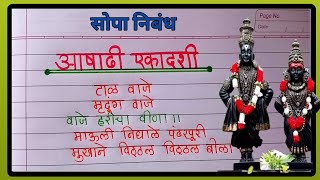 सोपा निबंध
Page No.
आषाढी एकादशी
टाळ वाजे
मृदूंग वाजे
वाजे हरीचा वीणा।।
माऊली निघाले पंढरपूरी
मुखाने विठ्ठल विठ्ठल बोला